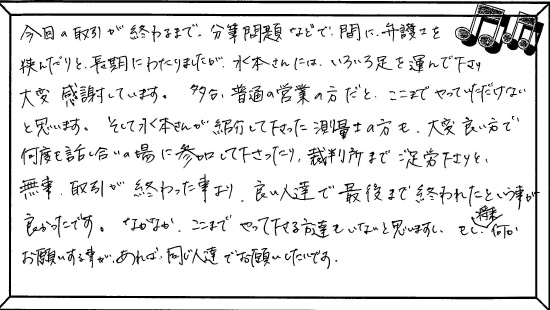 今回の取引が終わるまで、分筆問題などで、間に、弁護士を
挟んだりと、長期にわたりましたが、水本さんには、いろいろ足を運んで下さり
大変 感謝しています。 多分、普通の営業の方だと、ここまでやっていただけない
と思います。 そして水本さんが紹介して下さった測量士の方も、大変良い方で
何度も話し合いの場に参加して下さったり、裁判所までご足労下さりと、
無事、取引が終わった事より、良い人達で最後まで終われたという事が
良かったです。 なかなか、ここまでやって下さる方達もいないと思いますし、もし、将来何か
お願いする事が、あれば、同じ人達でお願いしたいです。